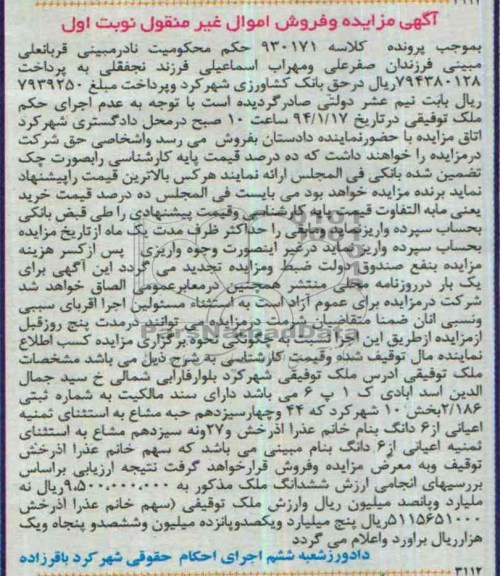 ۳۱۱۱
آگهی مزایده وفروش اموال غیر منقول نوبت اول
بموجب پرونده کلاسه ۹۳۰۱۷۱ حکم محکومیت نادرمبینی قربانعلی
مبینی فرزندان صفرعلی ومهراب اسماعیلی فرزند نجفقلی به پرداخت
۷۹۴۳۸۰۱۲۸ریال درحق بانک کشاورزی شهرکرد وپرداخت مبلغ ۷۹۳۹۲۵۰
ریال بابت نیم عشر دولتی صادرگردیده است با توجه به عدم اجرای حکم
ملک توقیفی درتاریخ ۹۴/۱/۱۷ ساعت ۱۰ صبح درمحل دادگستری شهرکرد
اتاق مزایده با حضورنماینده دادستان بفروش می رسد واشخاصی حق شرکت
درمزایده را خواهند داشت که ده درصد قیمت پایه کارشناسی رابصورت چک
تضمین شده بانکی فی المجلس ارائه نمایند هرکس بالاترین قیمت راپیشنهاد
نماید برنده مزایده خواهد بود می بایست فی المجلس ده درصد قیمت خرید
یعنی مابه التفاوت قیمت پایه کارشناسی وقیمت پیشنهادی را طی قبض بانکی
بحساب سپرده واریزنماید ومابقی را حداکثر ظرف مدت یک ماه ازتاریخ مزایده
بحساب سپرده واریز نماید درغیر اینصورت وجوه واریزی پس ازکسر هزینه
مزایده بنفع صندوق دولت ضبط ومزایده تجدید می گردد این آگهی برای
یک بار درروزنامه محلی منتشر همچنین درمعابرعمومی الصاق خواهد شد
شرکت درمزایده برای عموم آزاد است به استثناء مسئولین اجرا اقربای سببی
ونسبی آنان ضمنا متقاضیان شرکت درمزایده می توانند درمدت پنج روزقبل
ازمزایده ازطریق این اجرا نسبت به چگونگی نحوه برگزاری مزایده کسب اطلاع
نماینده مال توقیف شده وقیمت کارشناسی به شرح ذیل می باشد مشخصات
ملک توقیفی آدرس ملک توقیفی شهرکرد بلوارفارابی شمالی خ سید جمال
الدین اسد ابادی ک ۱ پ ۶ می باشد دارای سند مالکیت به شماره ثبتی
۲/۱۸۶بخش ۱۰ شهرکرد که ۴۴ وچهارسیزدهم حبه مشاع به استثنای ثمنیه
اعیانی از۶ دانگ بنام خانم عذرا آذرخش و۲۷ونه سیزدهم مشاع به استثنای
ثمنیه اعیانی از۶ دانگ بنام مبینی می باشد که سهم خانم عذرا آذرخش
توقیف وبه معرض مزایده وفروش قرارخواهد گرفت نتیجه ارزیابی براساس
بررسیهای انجامی ارزش ششدانگ ملک مذکور به ۹،۵۰۰،۰۰۰،۰۰۰ریال نه
ملیارد وپانصد میلیون ریال وارزش ملک توقیفی (سهم خانم عذرا آذرخش
۵۱۱۵۶۵۱۰۰۰ریال پنج میلیارد ویکصدوپانزده میلیون وششصدو پنجاه ویک
هزارریال براورد واعلام می گردد
دادورزشعبه ششم اجرای احکام حقوقی شهرکرد باقرزاده
۳۱۱۲